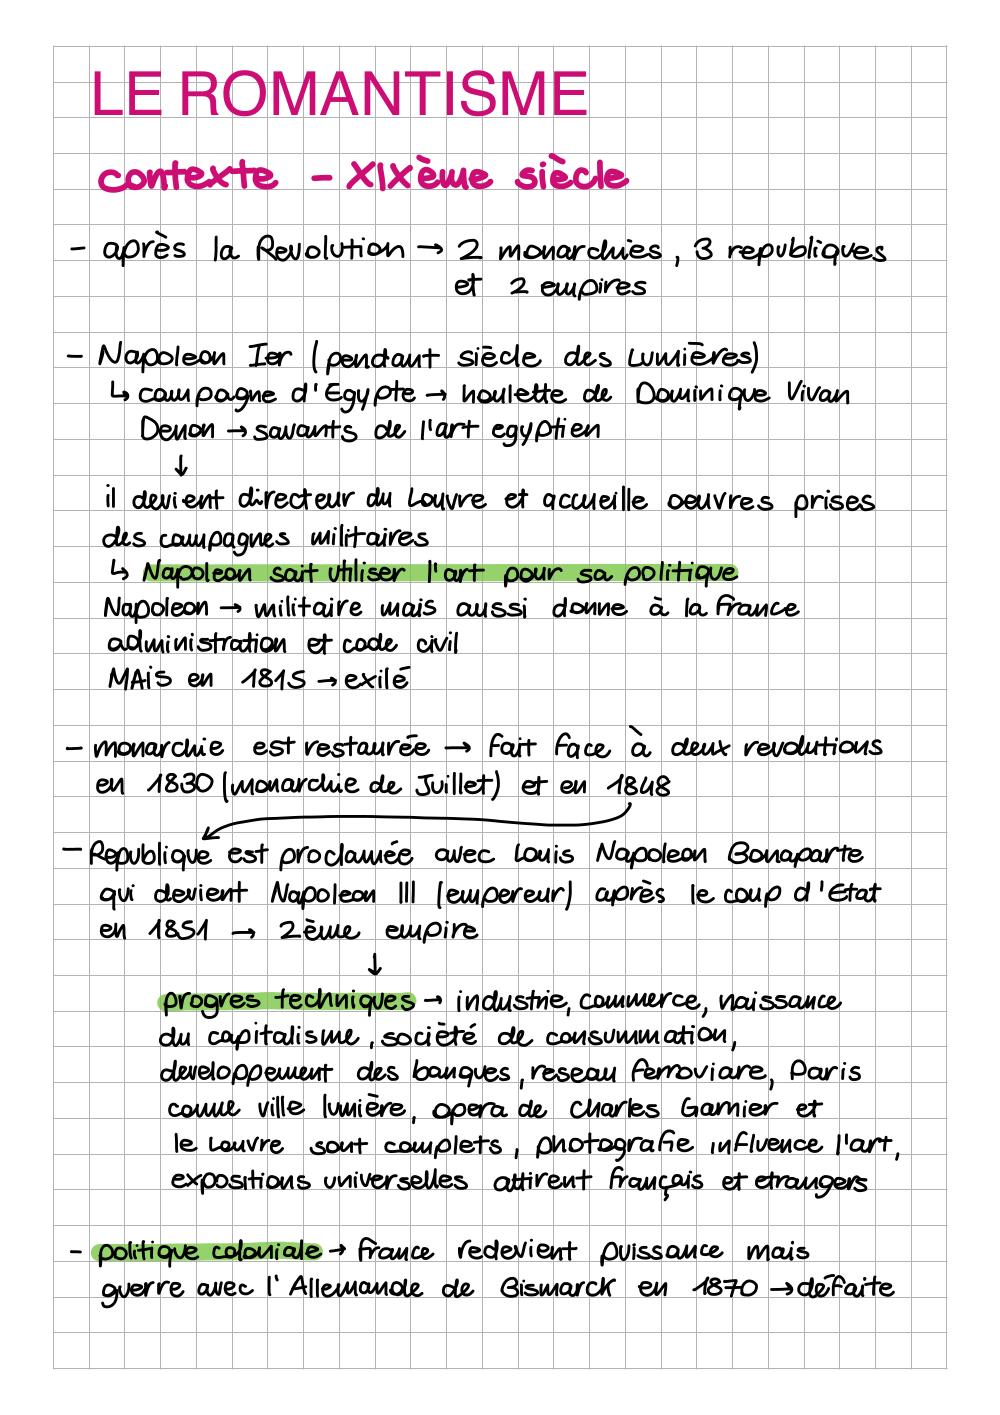 LE ROMANTISME
contexte - XIXème siècle
- après la Revolution → 2 monarchies, 3 republiques
et 2 empires
- Napoleon Ier (pendant siècle des Lumières)
↳ campagne d'Egypte → houlette de Dominique Vivan
Denon → savants de l'art egyptien
↓
il devient directeur du Louvre et accueille oeuvres prises
des campagnes militaires
↳ Napoleon sait utiliser l'art pour sa politique
Napoleon → militaire mais aussi donne à la france
administration et code civil
MAiS en 1815 → exilé
- monarchie est restaurée → fait face à deux revolutions
en 1830 (monarchie de Juillet) et en 1848
- Republique est proclamée avec Louis Napoleon Bonaparte
qui devient Napoleon III (empereur) après le coup d'Etat
en 1851 → 2ème empire
↓
progres techniques → industrie, commerce, naissance
du capitalisme, socièté de consummation,
developpement des banques, reseau ferroviare, Paris
comme ville lumière, opera de Charles Garnier et
le Louvre sont complets, photografie influence l'art,
expositions universelles attirent français et etrangers
- politique coloniale → france redevient puissance mais
guerre avec l'Allemande de Bismarck en 1870 → défaite